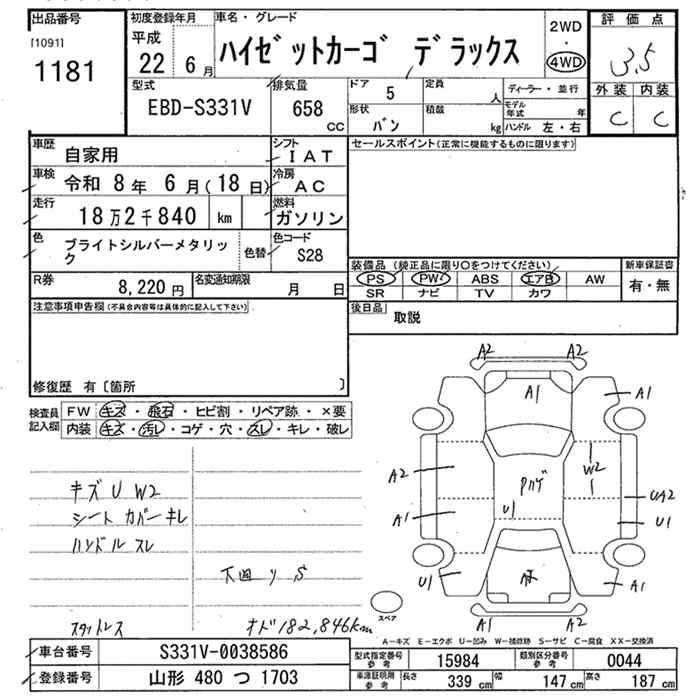 出品番号
[1091]
1181
初度登録年月
平成
22 6月
車名・グレード
ハイゼットカーゴ デラックス
2WD
・
4WD
評価点
3.5
外装 内装
C C
型式
EBD-S331V
排気量
658
CC
ドア
5
定員
人
形状
バン
積載
kg
ディーラー・並行
モデル年式 年
ハンドル 左・右
車歴
自家用
シフト
IAT
車検
令和 8年 6月(18日)
冷房
AC
走行
18万2千840 km
燃料
ガソリン
色
ブライトシルバーメタリック
色替
色コード
S28
R券
8,220円
名変通知期限
月 日
セールスポイント(正常に機能するものに限ります)
装備品(純正品に限り○をつけてください)
PS PW ABS エアB AW
SR ナビ TV カワ
新車保証書
有・無
後日品
取説
注意事項申告欄(不具合内容等は具体的に記入して下さい)
修復歴 有〔箇所 〕
検査員記入欄
FW キズ・飛石・ヒビ割・リペア跡・×要
内装 キズ・汚レ・コゲ・穴・スレ・キレ・破レ
キズ U W2
シート カバーキレ
ハンドル スレ
下回り S
スタットレス
オド182,846km
A2 A2
A1 A1
A2
W2
A1
U1
UA2
U1
U1
A1
A2 A2
スペア
A-キズ E-エクボ U-凹み W-補修跡 S-サビ C-腐食 XX-交換済
車台番号
S331V-0038586
登録番号
山形 480 つ 1703
型式指定番号
参考
15984
類別区分番号
参考
0044
車庫証明用
参考
長さ 339cm 幅 147cm 高さ 187cm